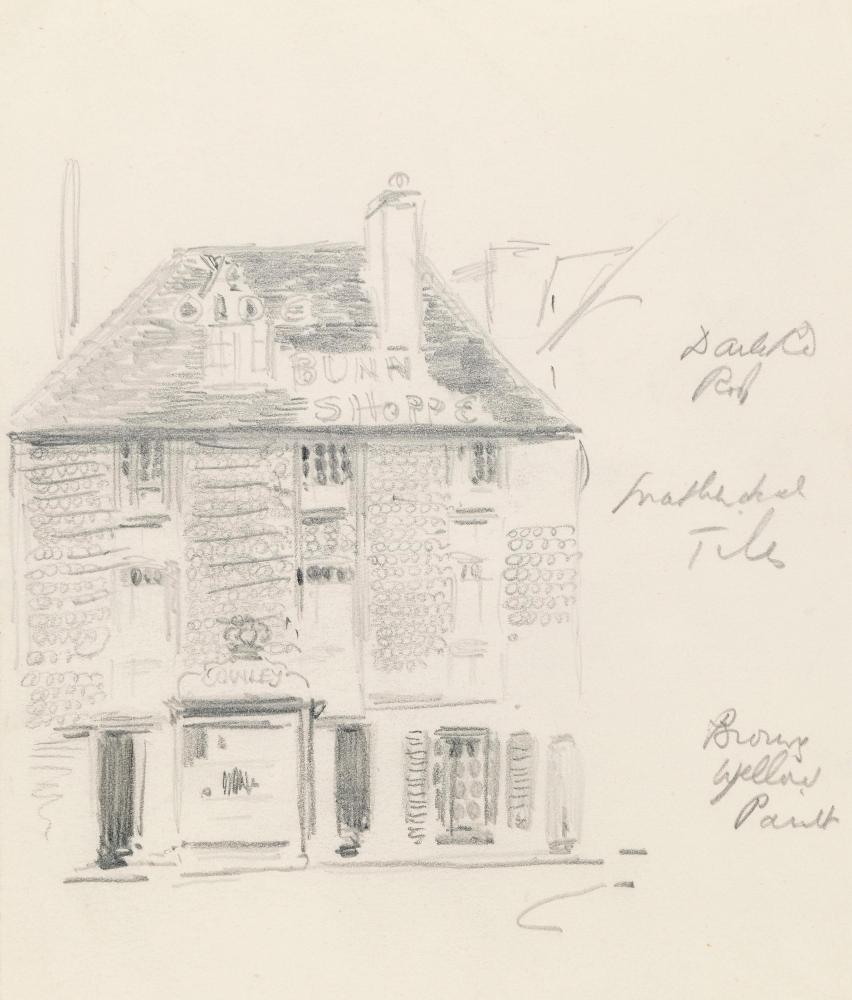 OLDE
BUNN
SHOPPE
COWLEY
Dark Rd
Roof
Mathematical
Tiles
Brown
Yellow
Paint